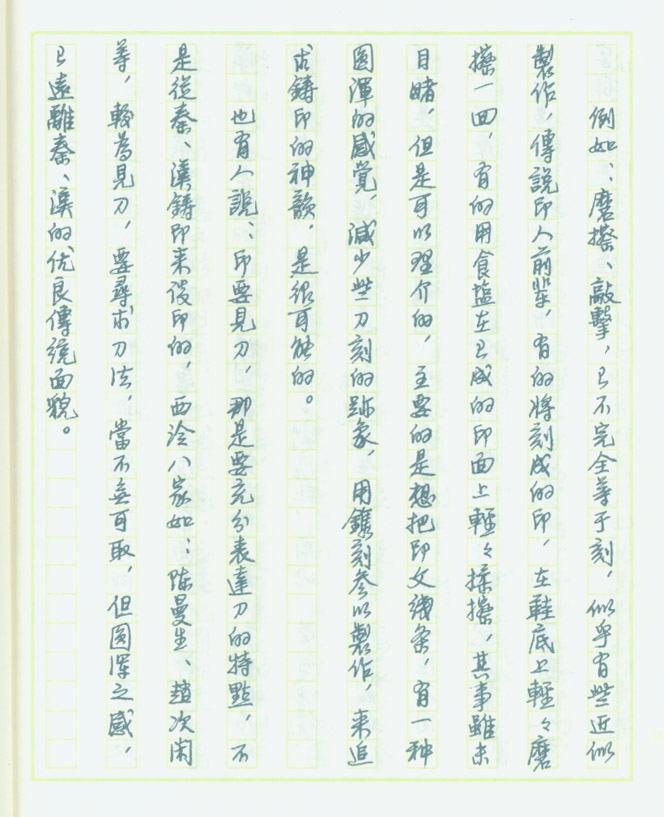 例如：磨擦、敲擊，已不完全等于刻，似乎有些近似
製作，傳說印人前輩，有的將刻成的印，在鞋底上輕々磨
擦一回，有的用食塩在已成的印面上輕々揉擦，其事雖未
目睹，但是可以理介的，主要的是想把印文綫条，有一种
圆渾的感覚，减少些刀刻的跡象，用鐫刻参以製作，来追
求鋳印的神韻，是很可能的。
也有人說：印要見刀，那是要充分表達刀的特點，不
是從秦、漢鋳印来谈印的，西泠八家如：陈曼生、趙次闲
等，較為見刀，要尋求刀法，當不無可取，但圆渾之感，
已遠離秦、漢的优良傳統面貌。